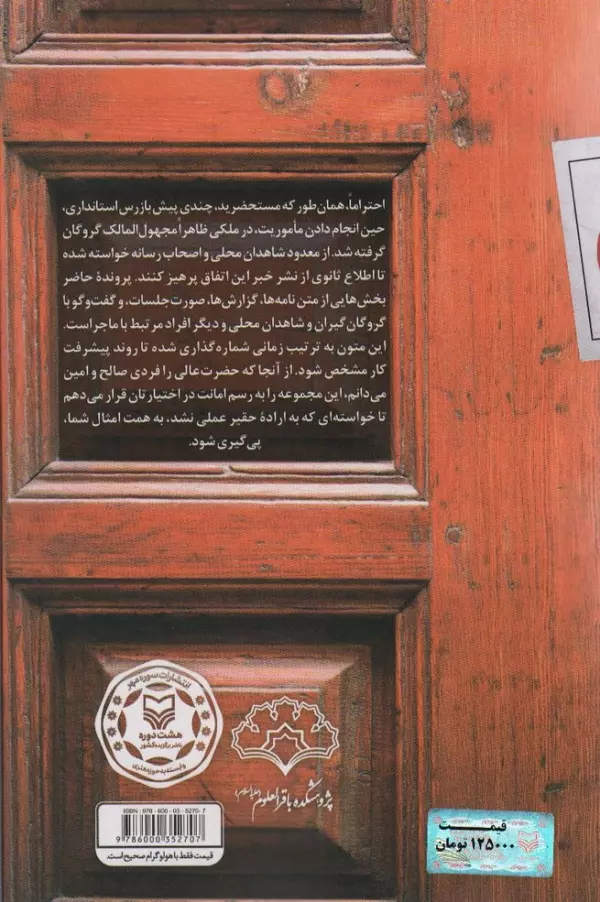 احتراماً، همان‌طور که مستحضرید، چندی پیش بازرس استانداری،
حین انجام دادن مأموریت، در ملکی ظاهراً مجهول‌المالک گروگان
گرفته شد. از معدود شاهدان محلی و اصحاب رسانه خواسته شده
تا اطلاع ثانوی از نشر خبر این اتفاق پرهیز کنند. پروندهٔ حاضر
بخش‌هایی از متن نامه‌ها، گزارش‌ها، صورت‌جلسات، و گفت‌وگو با
گروگان‌گیران و شاهدان محلی و دیگر افراد مرتبط با ماجراست.
این متون به ترتیب زمانی شماره‌گذاری شده تا روند پیشرفت
کار مشخص شود. از آنجا که حضرت‌عالی را فردی صالح و امین
می‌دانم، این مجموعه را به رسم امانت در اختیارتان قرار می‌دهم
تا خواسته‌ای که به ارادهٔ حقیر عملی نشد، به همت امثال شما،
پی‌گیری شود.
انتشارات سوره مهر
هشت دوره
ناشر برگزیده کشور
وابسته به حوزه هنری
پژوهشکده باقرالعلوم (علیه‌السلام)
ISBN: 978-600-03-5270-7
9 786000 352707
قیمت فقط با هولوگرام صحیح است.
قیمت
۱۲۵۰۰۰ تومان